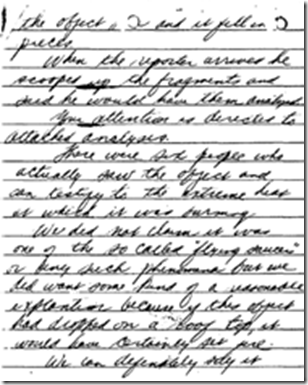 the object, 2 and it fell in 2
pieces.
When the reporter arrived he
scooped up the fragments and
said he would have them analyzed.
Your attention is directed to
attached analysis.
There were six people who
actually saw the object and
can testify to the extreme heat
at which it was burning
We did not claim it was
one of the so called "flying saucers"
or any such phenomana but we
did want some kind of a reasonable
explantion because if this object
had dropped on a roof top, it
would have certainly set fire.
We can defenately say it